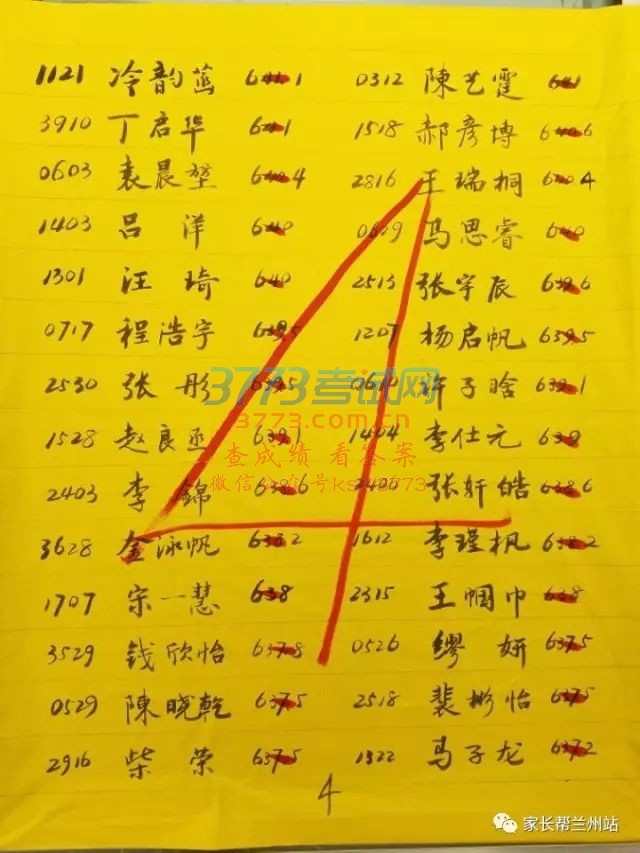 1121 冷韵菡 641.1 0312 陳艺霆 641
3910 丁启华 641 1518 郝彦博 640.6
0603 袁晨堃 640.4 2816 王瑞桐 640.4
1403 吕洋 640 0629 马思睿 640
1301 汪琦 640 2513 张宇辰 639.6
0717 程浩宇 639.5 1207 杨启帆 639.5
2530 张彤 639.5 许子晗 639.1
1528 赵良丞 639.1 1404 李仕元 639
2403 李錦 638.6 2406 张轩皓 638.6
3628 金泳帆 638.2 1612 李瑾枫 638.2
1707 宋一慧 638 2315 王帼巾 638
3529 钱欣怡 637.8 0526 缪妍 637.5
0529 陳晓乾 637.5 2518 裴彬怡 637.5
2916 柴荣 637.5 1322 马子龙 637.2
4
4
3773考试网
3773.com.cn
查成绩 看答案
微信公众号ks3773
家长帮兰州站